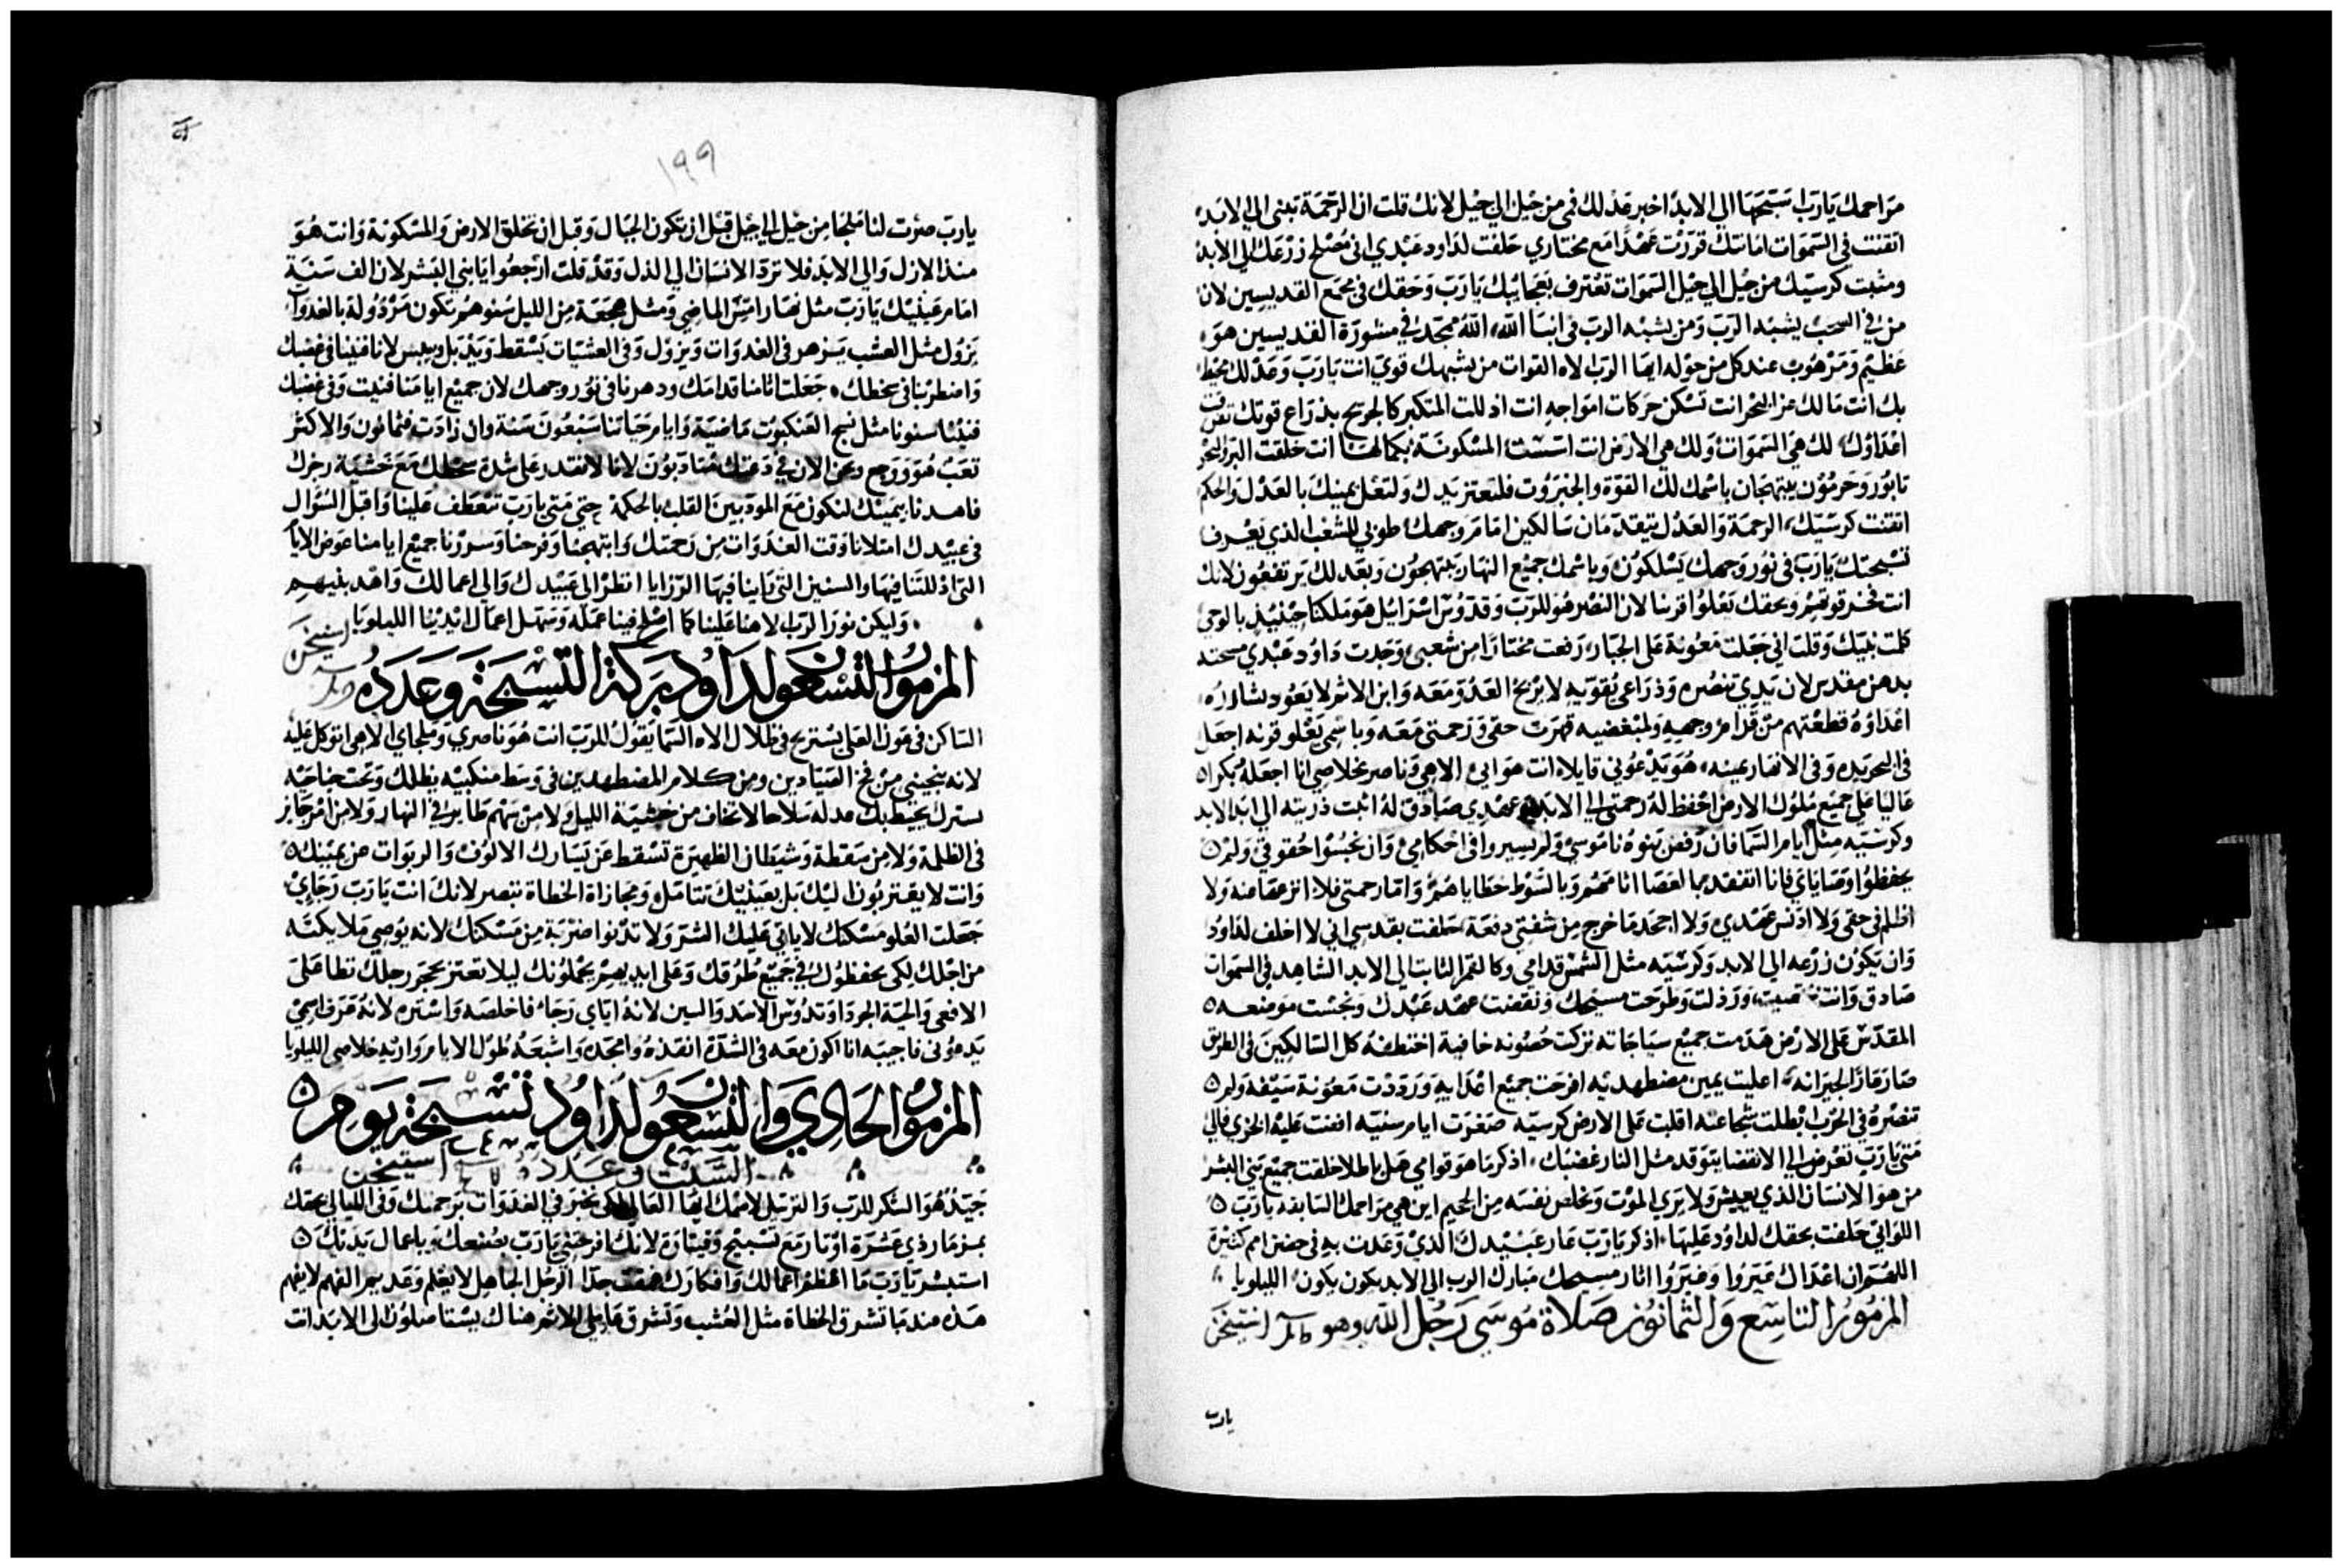 مراحمك يارب اسبحها الي الابد اخبر عدلك في من جيل الي جيل لانك قلت ان الرحمة تبني الي الابد
اتقنت في السموات امانتك قررت عهدا مع مختاري حلفت لداود عبدي اني مصلح زرعك الي الابد
ومثبت كرسيك من جيل الي جيل السموات تعترف بعجائبك يارب وحقك في مجمع القديسين لان
من في السحب يشبه الرب ومن يشبه الرب في ابنا الله، الله ممجد في مشورة القديسين هو
عظيم ومرهوب عند كل من حوله ايها الرب الاه القوات من يشبهك قوي انت يارب وعدلك محيط
بك انت مالك عز البحر انت تسكن حركات امواجه انت اذللت المتكبر كالجريح بذراع قوتك
اعداؤك لك هي السموات ولك هي الارض انت اسست المسكونة بكمالها انت خلقت البر والبحر
تابور وحرمون يبتهجان باسمك لك القوة والجبروت فلتعتز يدك ولتعل يمينك بالعدل والحكم
اتقنت كرسيك، الرحمة والعدل يتقدمان سالكين امام وجهك طوبي للشعب الذي يعرف
تسبحتك يارب في نور وجهك يسلكون وباسمك جميع النهار يبتهجون وبعدلك يرتفعون لانك
انت فخر قوتهم وبحقك تعلوا قرننا لان النصر هو للرب وقدوس اسرايل هو ملكنا حينيذ بالوحي
كلمت بنيك وقلت اني جعلت معونة علي الجبار، رفعت مختارا من شعبي، وجدت داود عبدي مسحته
بدهن مقدس لان يدي تنصره وذراعي تقويه لا يربح العدو معه وابن الاثم لا يعود
اعداؤه قطعتهم من قدام وجهه ولمبغضيه قهرت حقي ورحمتي معه وباسمي يعلو قرنه اجعل
في البحر يده وفي الانهار يمينه، هو يدعوني قايلا انت هو ابي الاهي وناصر خلاصي انا اجعله بكرا
عاليا علي جميع ملوك الارض احفظ له رحمتي الي الابد عهدي صادق له اثبت ذريته الي ابد الابد
وكرسيه مثل ايام السما فان رفض بنوه ناموسي ولم يسيروا في احكامي وان نجسوا حقوقي ولم
يحفظوا وصاياي فانا اتفقد بالعصا اثامهم وبالسوط خطاياهم واما رحمتي فلا انزعها منه ولا
اظلم في حقي ولا ادنس عهدي ولا اجحد ما خرج من شفتي دفعة حلفت بقدسي اني لا اخلف لداود
وان يكون زرعه الي الابد وكرسيه مثل الشمس قدامي وكالقمر الثابت الي الابد الشاهد في السموات
صادق وانت ورذلت وطرحت مسيحك ونقضت عهد عبدك ونجست موضعه
المقدس علي الارض هدمت جميع سياجاته تركت حصونه خافية اختطفه كل السالكين في الطريق
صار عارا لجيرانه، اعليت يمين مضطهديه افرحت جميع اعدايه ورددت معونة سيفه ولم
تنصره في الحرب ابطلت شجاعته اقلبت علي الارض كرسيه صغرت ايام سنيه افضت عليه الخزي فالي
متي يارب تعرض الي الانقضا يتوقد مثل النار غضبك، اذكر ما هو قوامي هل باطلا خلقت جميع بني البشر
من هو الانسان الذي يعيش ولا يري الموت ويخلص نفسه من الجحيم اين هي مراحمك السابقه يارب
اللواتي حلفت بحقك لداود عليها، اذكر يارب عار عبيدك الذي وعدت به في حضن امم كثيرة
اللهم ان اعداك عيروا وعيروا اثار مسيحك مبارك الرب الي الابد يكون يكون الليلويا
المزمور التاسع والثمانون صلاة موسي رجل الله وهو استيخن
يارب
١٩٩
يارب صرت لنا ملجا من جيل الي جيل قبل ان تكون الجبال وقبل ان تخلق الارض والمسكونة وانت هو
منذ الازل والي الابد فلا ترد الانسان الي الذل وقد قلت ارجعوا يا بني البشر لان الف سنة
امام عينيك يارب مثل نهار امس الماضي ومثل هجعة من الليل سنوهم تكون مرذولة بالغدوات
تزول مثل العشب يزهر في الغدوات ويزول وفي العشيات يسقط ويذبل وييبس لانا فنينا في غضبك
واضطربنا في سخطك، جعلت اثامنا قدامك ودهرنا في نور وجهك لان جميع ايامنا فنيت وفي غضبك
فنينا سنونا مثل نسج العنكبوت ماضية وايام حياتنا سبعون سنة وان زادت فثمانون والاكثر
تعب هو ووجع ونحن الان في دعتك متادبون لانا لا نقدر علي شدة سخطك مع خشية رجزك
فاهدنا بيمينك لنكون مع المودبين القلب بالحكمة حتي متي يارب تتعطف علينا واقبل السوال
في عبيدك امتلانا وقت الغدوات من رحمتك وابتهجنا وفرحنا وسررنا جميع ايامنا عوض الايام
التي اذللتنا فيها والسنين التي راينا فيها الرزايا انظر الي عبيدك والي اعمالك واهد بنيهم
وليكن نور الرب الاهنا علينا كما اصلح فينا عمله وسهل اعمال ايدينا الليلويا استيخن
المزمور التسعون لداود بركة التسبحة وعدده
الساكن في عون العلي يستريح في ظلال الاه السما يقول للرب انت هو ناصري وملجاي الاهي اتوكل عليه
لانه ينجيني من فخ الصيادين ومن كلام المضطهدين في وسط منكبيه يظلك وتحت جناحيه
يسترك يحيط بك عدله سلاحا لا تخاف من خشية الليل ولا من سهم طاير في النهار ولا من امر جايز
في الظلمة ولا من سقطة وشيطان الظهيرة تسقط عن يسارك الالوف والربوات عن يمينك
وانت لا يقتربون اليك بل بعينيك تتامل ومجازاة الخطاة تبصر لانك انت يارب رجاي
جعلت العلو مسكنك لا ياتي عليك الشر ولا تدنوا ضربة من مسكنك لانه يوصي ملايكته
من اجلك لكي يحفظوك في جميع طرقك وعلي ايديهم يحملونك ليلا تعثر بحجر رجلك تطا علي
الافعي والحية الجرد وتدوس الاسد والتنين لانه اياي رجا، فاخلصه واستره لانه عرف اسمي
يدعوني فاجيبه انا اكون معه في الشدة انقذه وامجده واشبعه طول الايام واريه خلاصي الليلويا
المزمور الحادي والتسعون لداود تسبحة يوم
السبت وعدده استيخن
جيد هو الشكر للرب والترتيل لاسمك ايها العالي لكي نخبر في الغدوات برحمتك وفي الليالي بحقك
بمزمار ذي عشرة اوتار مع تسبيح وقيثارة لانك افرحتني يارب بصنعك وباعمال يديك
استبشر يارب ما اعظم اعمالك وافكارك عمقت جدا الرجل الجاهل لا يعلم وعديم الفهم لا يفهم
هذه عندما تشرق الخطاة مثل العشب وتشرق فاعلي الاثم هناك يستاصلون الي الابد انت